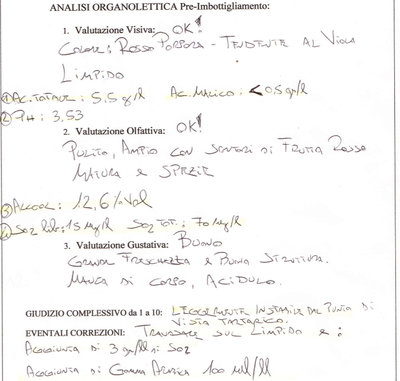 ANALISI ORGANOLETTICA Pre-Imbottigliamento:
1. Valutazione Visiva: OK!
COLORE: ROSSO PORPORA - TENDENTE AL VIOLA
LIMPIDO
① AC. TOTALE: 5,5 g/l AC. MALICO: <0,5 g/l
② PH: 3,53
2. Valutazione Olfattiva: OK!
PULITO, AMPIO CON SENTORI DI FRUTTA ROSSO
MATURA E SPEZIE
③ ALCOOL: 12,6 %Vol
④ SO2 lib.: 15 mg/l SO2 TOT.: 70 mg/l
3. Valutazione Gustativa: BUONO
GRANDE FRESCHEZZA E BUONA STRUTTURA.
MANCA DI CORPO, ACIDULO.
GIUDIZIO COMPLESSIVO da 1 a 10: LEGGERMENTE INSTABILE DAL PUNTO DI
VISTA TARTARICO
EVENTALI CORREZIONI: TRAVASARE SUL LIMPIDO E:
AGGIUNTA DI 3 gr/hl di SO2
AGGIUNTA DI GOMMA ARABICA 100 ml/hl